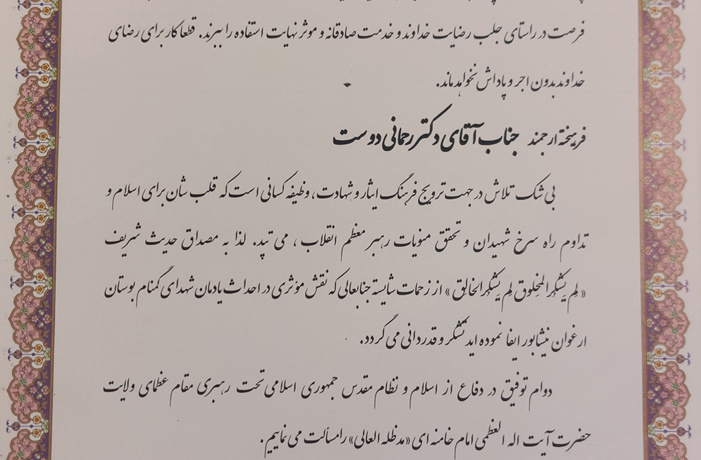 فرصت در راستای جلب رضایت خداوند و خدمت صادقانه و موثر نهایت استفاده را ببرند. قطعا کار برای رضای
خداوند بدون اجر و پاداش نخواهد ماند.
فرهیخته ارجمند جناب آقای دکتر رحمانی دوست
بی شک تلاش در جهت ترویج فرهنگ ایثار و شهادت، وظیفه کسانی است که قلب شان برای اسلام و
تداوم راه سرخ شهیدان و تحقق منویات رهبر معظم انقلاب، می تپد. لذا به مصداق حدیث شریف
«لم یشکر المخلوق لم یشکر الخالق» از زحمات شایسته جنابعالی که نقش مؤثری در احداث یادمان شهدای گمنام بوستان
ارغوان نیشابور ایفا نموده اید تشکر و قدردانی می گردد.
دوام توفیق در دفاع از اسلام و نظام مقدس جمهوری اسلامی تحت رهبری مقام عظمای ولایت
حضرت آیت اله العظمی امام خامنه ای «مدظله العالی» را مسألت می نماییم.